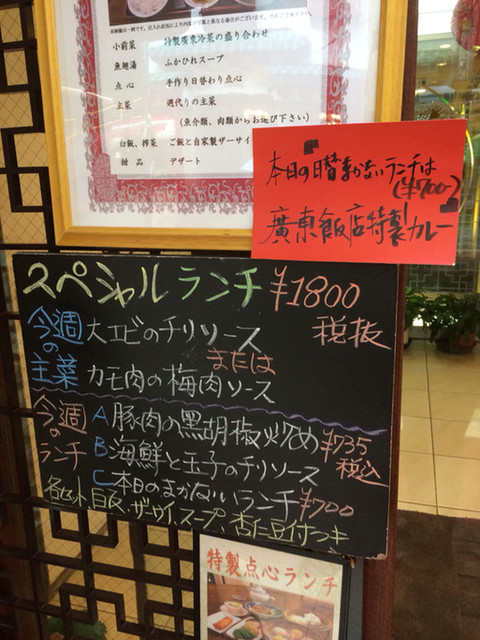 小前菜 特製廣東冷菜の盛り合わせ
魚翅湯 ふかひれスープ
点心 手作り日替わり点心
主菜 週代りの主菜
(魚介類、肉類からお選び下さい)
白飯、搾菜 ご飯と自家製ザーサイ
甜品 デザート
本日の日替まかないランチは
(¥700-)
廣東飯店特製カレー
スペシャルランチ ¥1800
税抜
今週の主菜
大エビのチリソース
または
カモ肉の梅肉ソース
今週のランチ
A 豚肉の黒胡椒炒め ¥735
B 海鮮と玉子のチリソース 税込
C 本日のまかないランチ ¥700
各セット、白飯、ザーサイ、スープ、杏仁豆腐付つき
特製点心ランチ